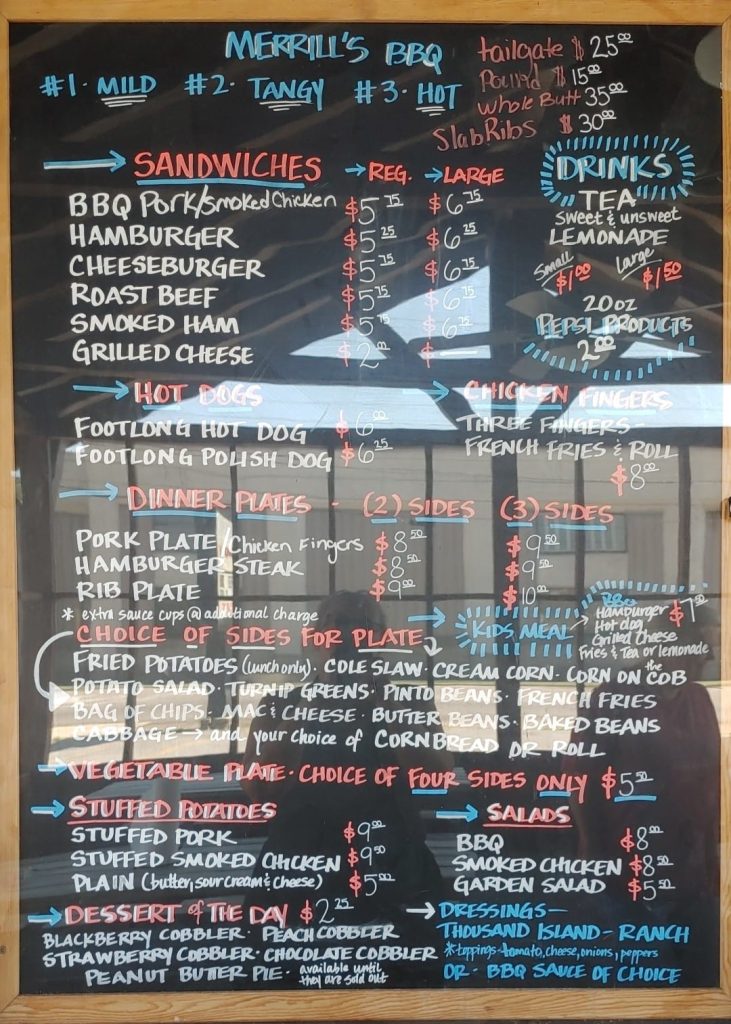 MERRILL'S BBQ
#1· MILD #2· TANGY #3· HOT
tailgate $25.00
Pound $15.00
Whole Butt 35.00
Slab Ribs $30.00
→ SANDWICHES → REG. → LARGE
BBQ Pork/Smoked Chicken $5.75 $6.75
HAMBURGER $5.25 $6.25
CHEESEBURGER $5.75 $6.75
ROAST BEEF $5.75 $6.75
SMOKED HAM $5.75 $6.75
GRILLED CHEESE $2.00 $ —
DRINKS
TEA
Sweet & unsweet
LEMONADE
Small $1.00 Large $1.50
20oz
PEPSI PRODUCTS
2.00
→ HOT DOGS
FOOTLONG HOT DOG $6.00
FOOTLONG POLISH DOG $6.25
→ CHICKEN FINGERS
THREE FINGERS-
FRENCH FRIES & ROLL
$8.00
→ DINNER PLATES - (2) SIDES (3) SIDES
PORK PLATE/Chicken Fingers $8.50 $9.50
HAMBURGER STEAK $8.50 $9.50
RIB PLATE $9.00 $10.00
* extra sauce cups @ additional charge
→ KIDS MEAL →
BBQ
Hamburger
Hot dog
Grilled Cheese
Fries & Tea or lemonade
CHOICE OF SIDES FOR PLATE
FRIED POTATOES (lunch only) · COLE SLAW · CREAM CORN · CORN ON the COB
POTATO SALAD · TURNIP GREENS · PINTO BEANS · FRENCH FRIES
BAG OF CHIPS · MAC & CHEESE · BUTTER BEANS · BAKED BEANS
CABBAGE → and your choice of CORNBREAD OR ROLL
→ VEGETABLE PLATE · CHOICE OF FOUR SIDES ONLY $5.50
→ STUFFED POTATOES
STUFFED PORK $9.00
STUFFED SMOKED CHICKEN $9.50
PLAIN (butter, sour cream & cheese) $5.00
→ SALADS
BBQ $8.00
SMOKED CHICKEN $8.50
GARDEN SALAD $5.50
→ DESSERT of THE DAY $2.25
BLACKBERRY COBBLER · PEACH COBBLER
STRAWBERRY COBBLER · CHOCOLATE COBBLER
PEANUT BUTTER PIE · available until they are sold out
→ DRESSINGS —
THOUSAND ISLAND - RANCH
*toppings - tomato, cheese, onions, peppers
OR - BBQ SAUCE OF CHOICE